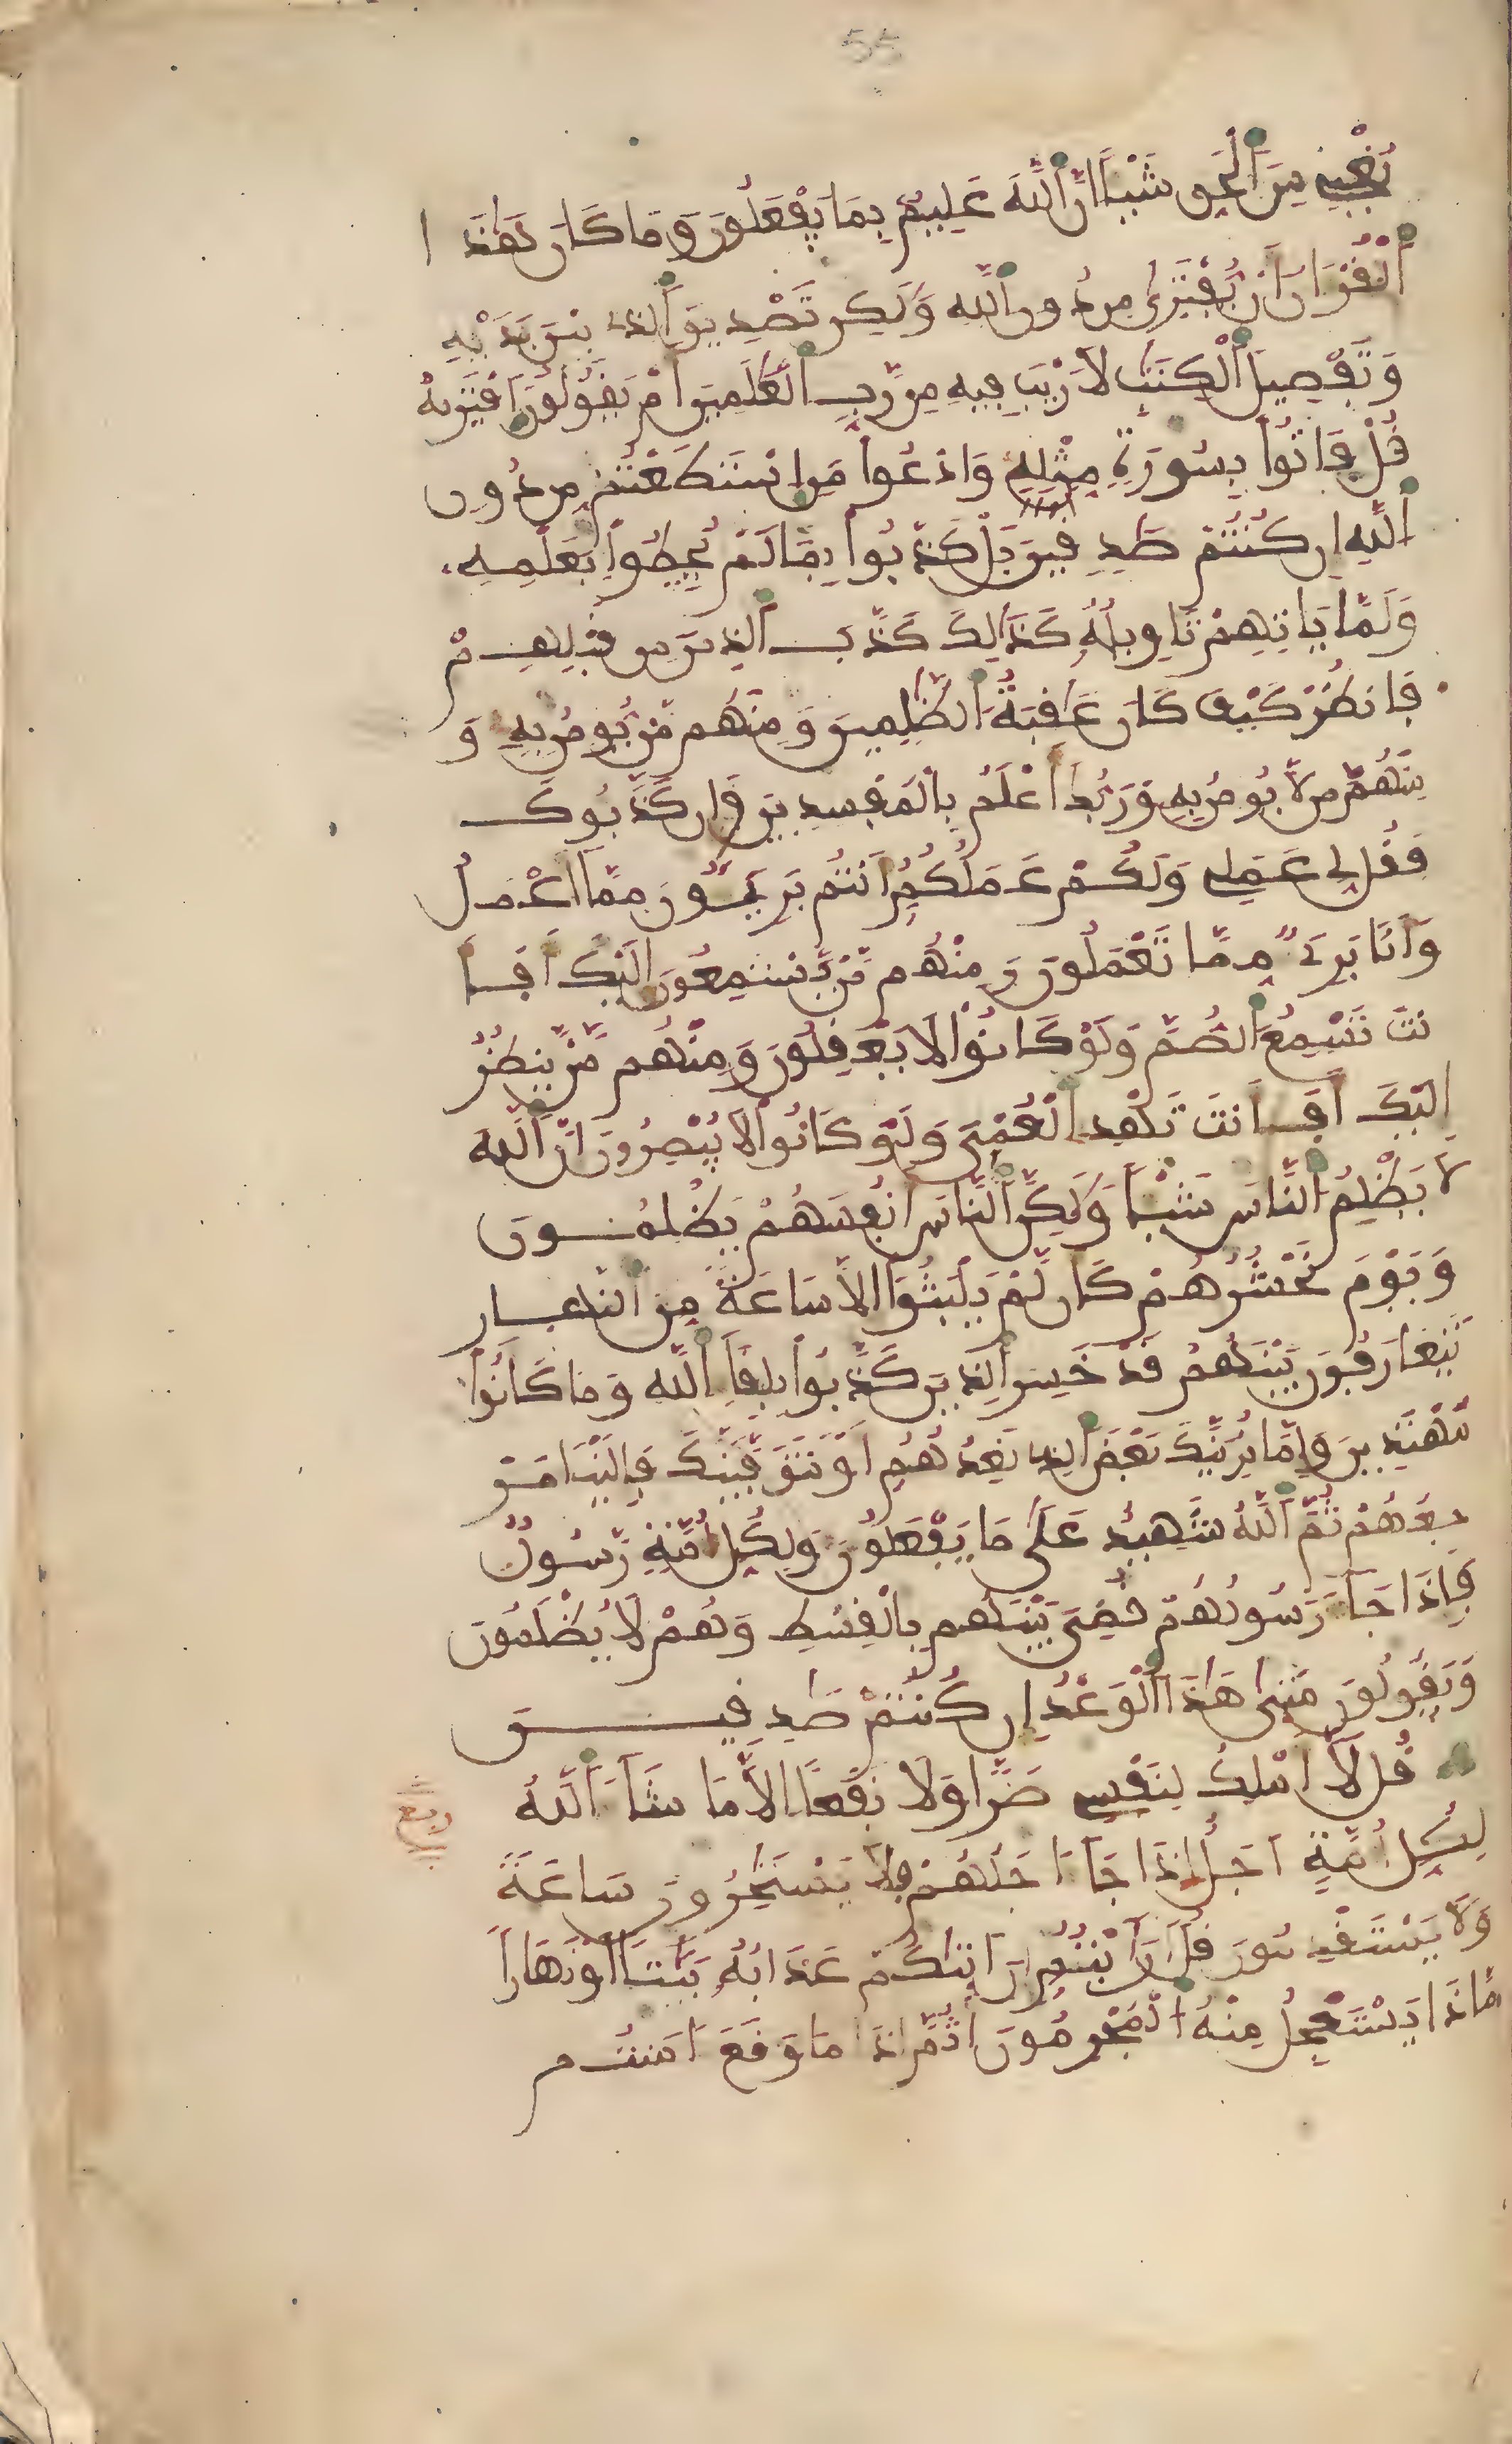 55
يُغْنِے مِنَ ٱلْحَقِّ شَيْـًٔا اِنَّ ٱللَّهَ عَلِيمٌ بِمَا يَفْعَلُونَ وَمَا كَانَ هَٰذَا
ٱلْقُرْءَانُ أَنْ يُّفْتَرَىٰ مِن دُونِ ٱللَّهِ وَلَٰكِن تَصْدِيقَ ٱلَّذِے بَيْنَ يَدَيْهِ
وَتَفْصِيلَ ٱلْكِتَٰبِ لَا رَيْبَ فِيهِ مِن رَّبِّ ٱلْعَٰلَمِينَ أَمْ يَقُولُونَ ٱفْتَرَىٰهُ
قُلْ فَاتُواْ بِسُورَةٍ مِّثْلِهِ وَادْعُواْ مَنِ اسْتَطَعْتُم مِّن دُونِ
ٱللَّهِ إِن كُنتُمْ صَٰدِقِينَ بَلْ كَذَّبُواْ بِمَا لَمْ يُحِيطُواْ بِعِلْمِهِ
وَلَمَّا يَاتِهِمْ تَاوِيلُهُ كَذَٰلِكَ كَذَّبَ ٱلَّذِينَ مِن قَبْلِهِمْ
فَانظُرْ كَيْفَ كَانَ عَٰقِبَةُ ٱلظَّٰلِمِينَ وَمِنْهُم مَّنْ يُّومِنُ بِهِ وَ
مِنْهُم مَّن لَّا يُومِنُ بِهِ وَرَبُّكَ أَعْلَمُ بِالْمُفْسِدِينَ وَإِن كَذَّبُوكَ
فَقُل لِّے عَمَلِے وَلَكُمْ عَمَلُكُمُ أَنتُم بَرِيـُٔونَ مِمَّا أَعْمَلُ
وَأَنَا بَرِےءٌ مِّمَّا تَعْمَلُونَ وَمِنْهُم مَّنْ يَّسْتَمِعُونَ إِلَيْكَ أَفَأَ
نتَ تُسْمِعُ ٱلصُّمَّ وَلَوْ كَانُواْ لَا يَعْقِلُونَ وَمِنْهُم مَّنْ يَّنظُرُ
إِلَيْكَ أَفَأَنتَ تَهْدِے ٱلْعُمْيَ وَلَوْ كَانُواْ لَا يُبْصِرُونَ إِنَّ ٱللَّهَ
لَا يَظْلِمُ ٱلنَّاسَ شَيْـًٔا وَلَٰكِنَّ ٱلنَّاسَ أَنفُسَهُمْ يَظْلِمُونَ
وَيَوْمَ نَحْشُرُهُمْ كَأَن لَّمْ يَلْبَثُواْ إِلَّا سَاعَةً مِّنَ ٱلنَّهَارِ
يَتَعَارَفُونَ بَيْنَهُمْ قَدْ خَسِرَ ٱلَّذِينَ كَذَّبُواْ بِلِقَآءِ ٱللَّهِ وَمَا كَانُواْ
مُهْتَدِينَ وَإِمَّا نُرِيَنَّكَ بَعْضَ ٱلَّذِے نَعِدُهُمُ أَوْ نَتَوَفَّيَنَّكَ فَإِلَيْنَا مَرْ
جِعُهُمْ ثُمَّ ٱللَّهُ شَهِيدٌ عَلَىٰ مَا يَفْعَلُونَ وَلِكُلِّ أُمَّةٍ رَّسُولٌ
فَإِذَا جَآءَ رَسُولُهُمْ قُضِيَ بَيْنَهُم بِالْقِسْطِ وَهُمْ لَا يُظْلَمُونَ
وَيَقُولُونَ مَتَىٰ هَٰذَا ٱلْوَعْدُ إِن كُنتُمْ صَٰدِقِينَ
قُل لَّا أَمْلِكُ لِنَفْسِے ضَرًّا وَلَا نَفْعًا إِلَّا مَا شَآءَ ٱللَّهُ
ربع
لِكُلِّ أُمَّةٍ أَجَلٌ إِذَا جَآءَ اجَلُهُمْ فَلَا يَسْتَٰخِرُونَ سَاعَةً
وَلَا يَسْتَقْدِمُونَ قُلَ أَرَٰيْتُمُ إِنَ أَتَىٰكُمْ عَذَابُهُ بَيَٰتًا أَوْ نَهَارًا
مَّاذَا يَسْتَعْجِلُ مِنْهُ ٱلْمُجْرِمُونَ أَثُمَّ إِذَا مَا وَقَعَ ءَامَنتُم